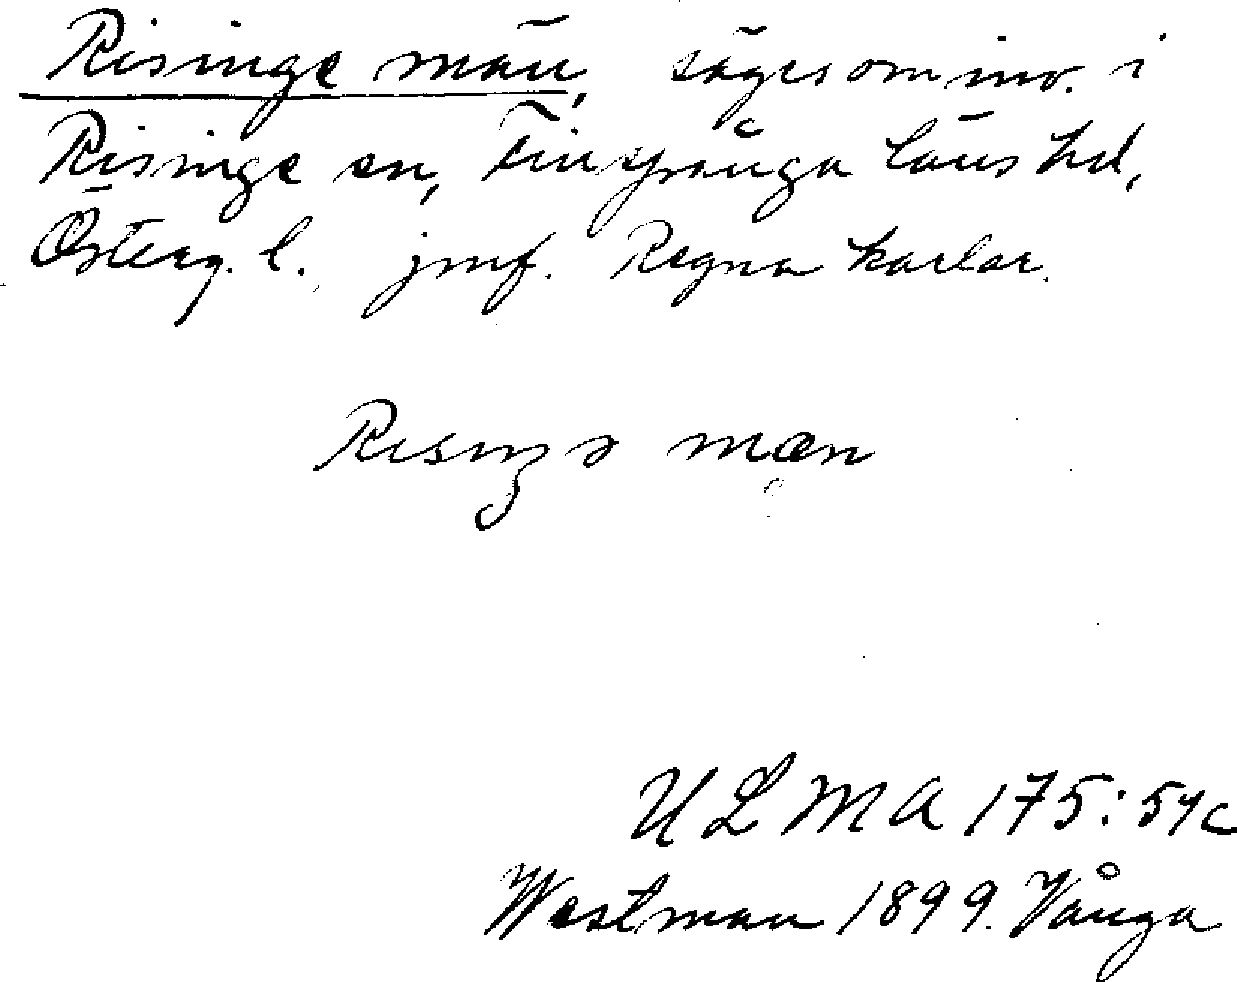 Risinge män, säges om inv. i
Risinge sn, Finspånga läns hd,
Österg. l. jmf. Regna karlar.
Risiŋə mæn
ULMA 175:54c
Westman 1899. Vånga